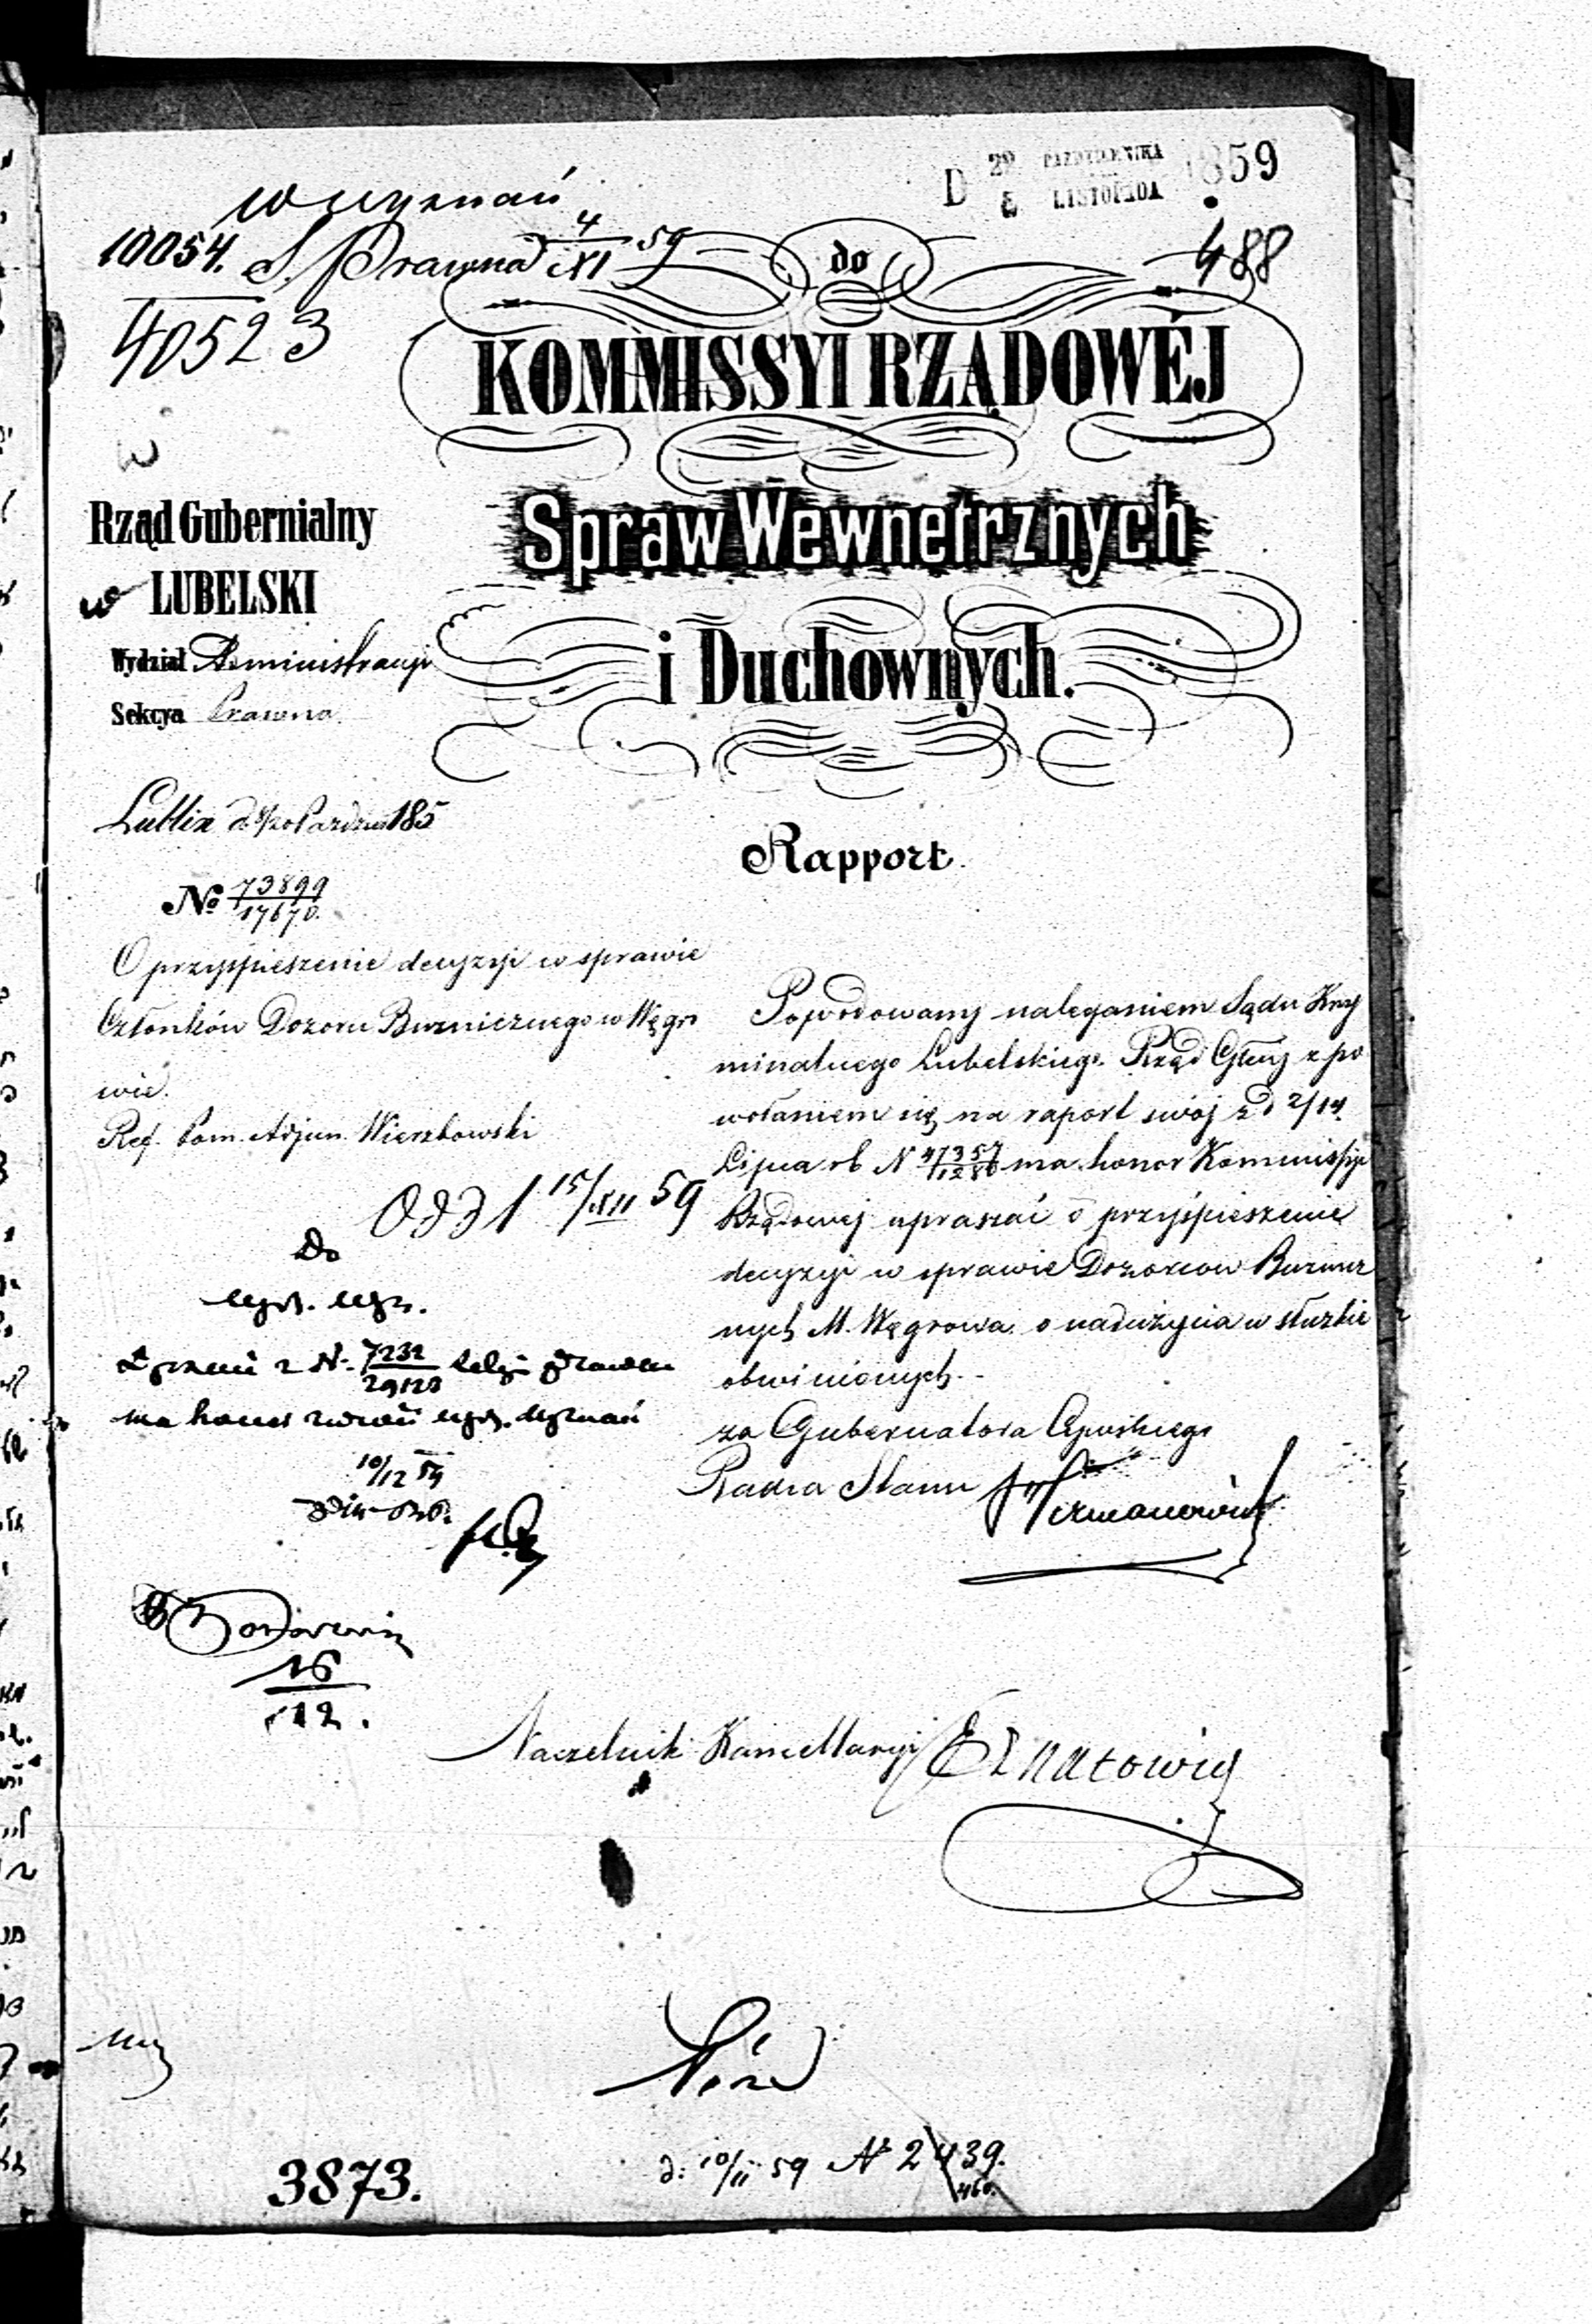 wyznań
D 1859
LISTOPADA
10054. S. Prawna 4/XI 59
do
488
40523
KOMMISSYI RZĄDOWÉJ
Spraw Wewnetrznych
i Duchownych.
Rząd Gubernialny
LUBELSKI
Wydział Administracyi
Sekcya Prawna
Lublin 185
Rapport.
No 73899/17670.
O przyśpieszenie decyzyi w sprawie
Członków Dozoru Bużniczego w Węgro
wie.
Ref. Pom. Adjun. Wierzbowski
Powodowany naleganiem Sądu Kry
minalnego Lubelskiego. Rząd Gbny z po
wołaniem się na raport swój z d 2/14
Lipca rb N ma honor Kommissyi
Rządowej upraszać o przyśpieszenie
decyzyi w sprawie Dozorców Bużnicz
nych M. Węgrowa o nadużycia w służbie
obwinionych.
za Gubernatora Cywilnego
Radca Stanu
15/XII 59
Do
N. 7232/29128
ma honor
10/12 59
16/12.
Naczelnik Kancellaryi
3873.
d: 10/11 59 N 2439.